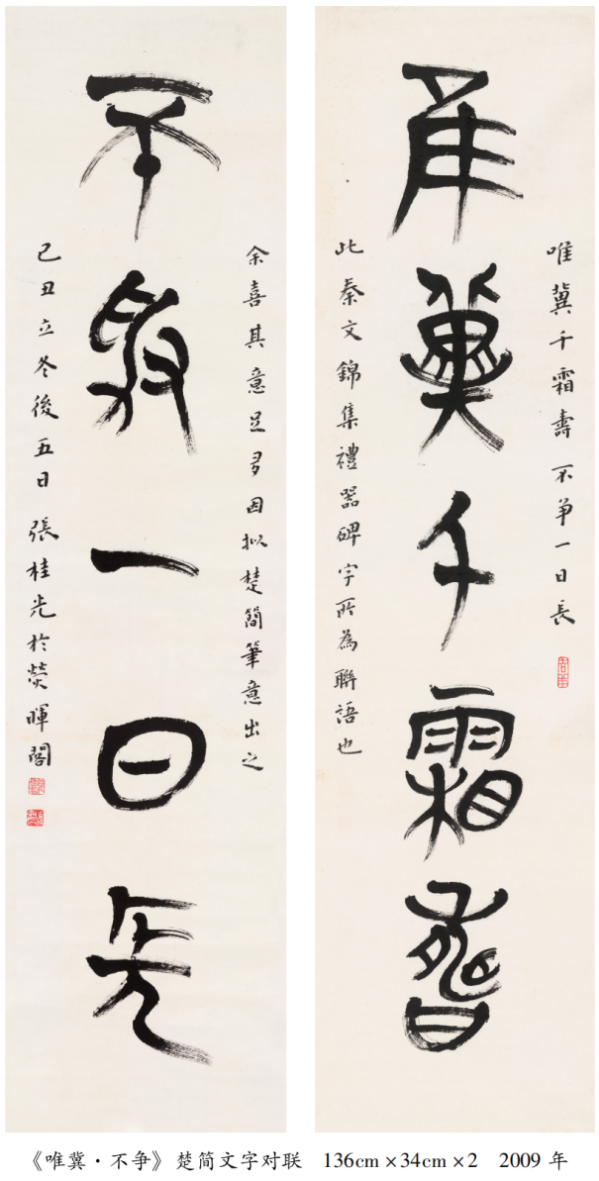 唯冀千霜壽不争一日長
隹冀千霜壽
此秦文錦集禮器碑字所為聯語也
余喜其意足多因拟楚簡筆意出之
不爭一日長
己丑立冬後五日張桂光於熒暉閣
《唯冀·不争》楚简文字对联 136cm×34cm×2 2009 年